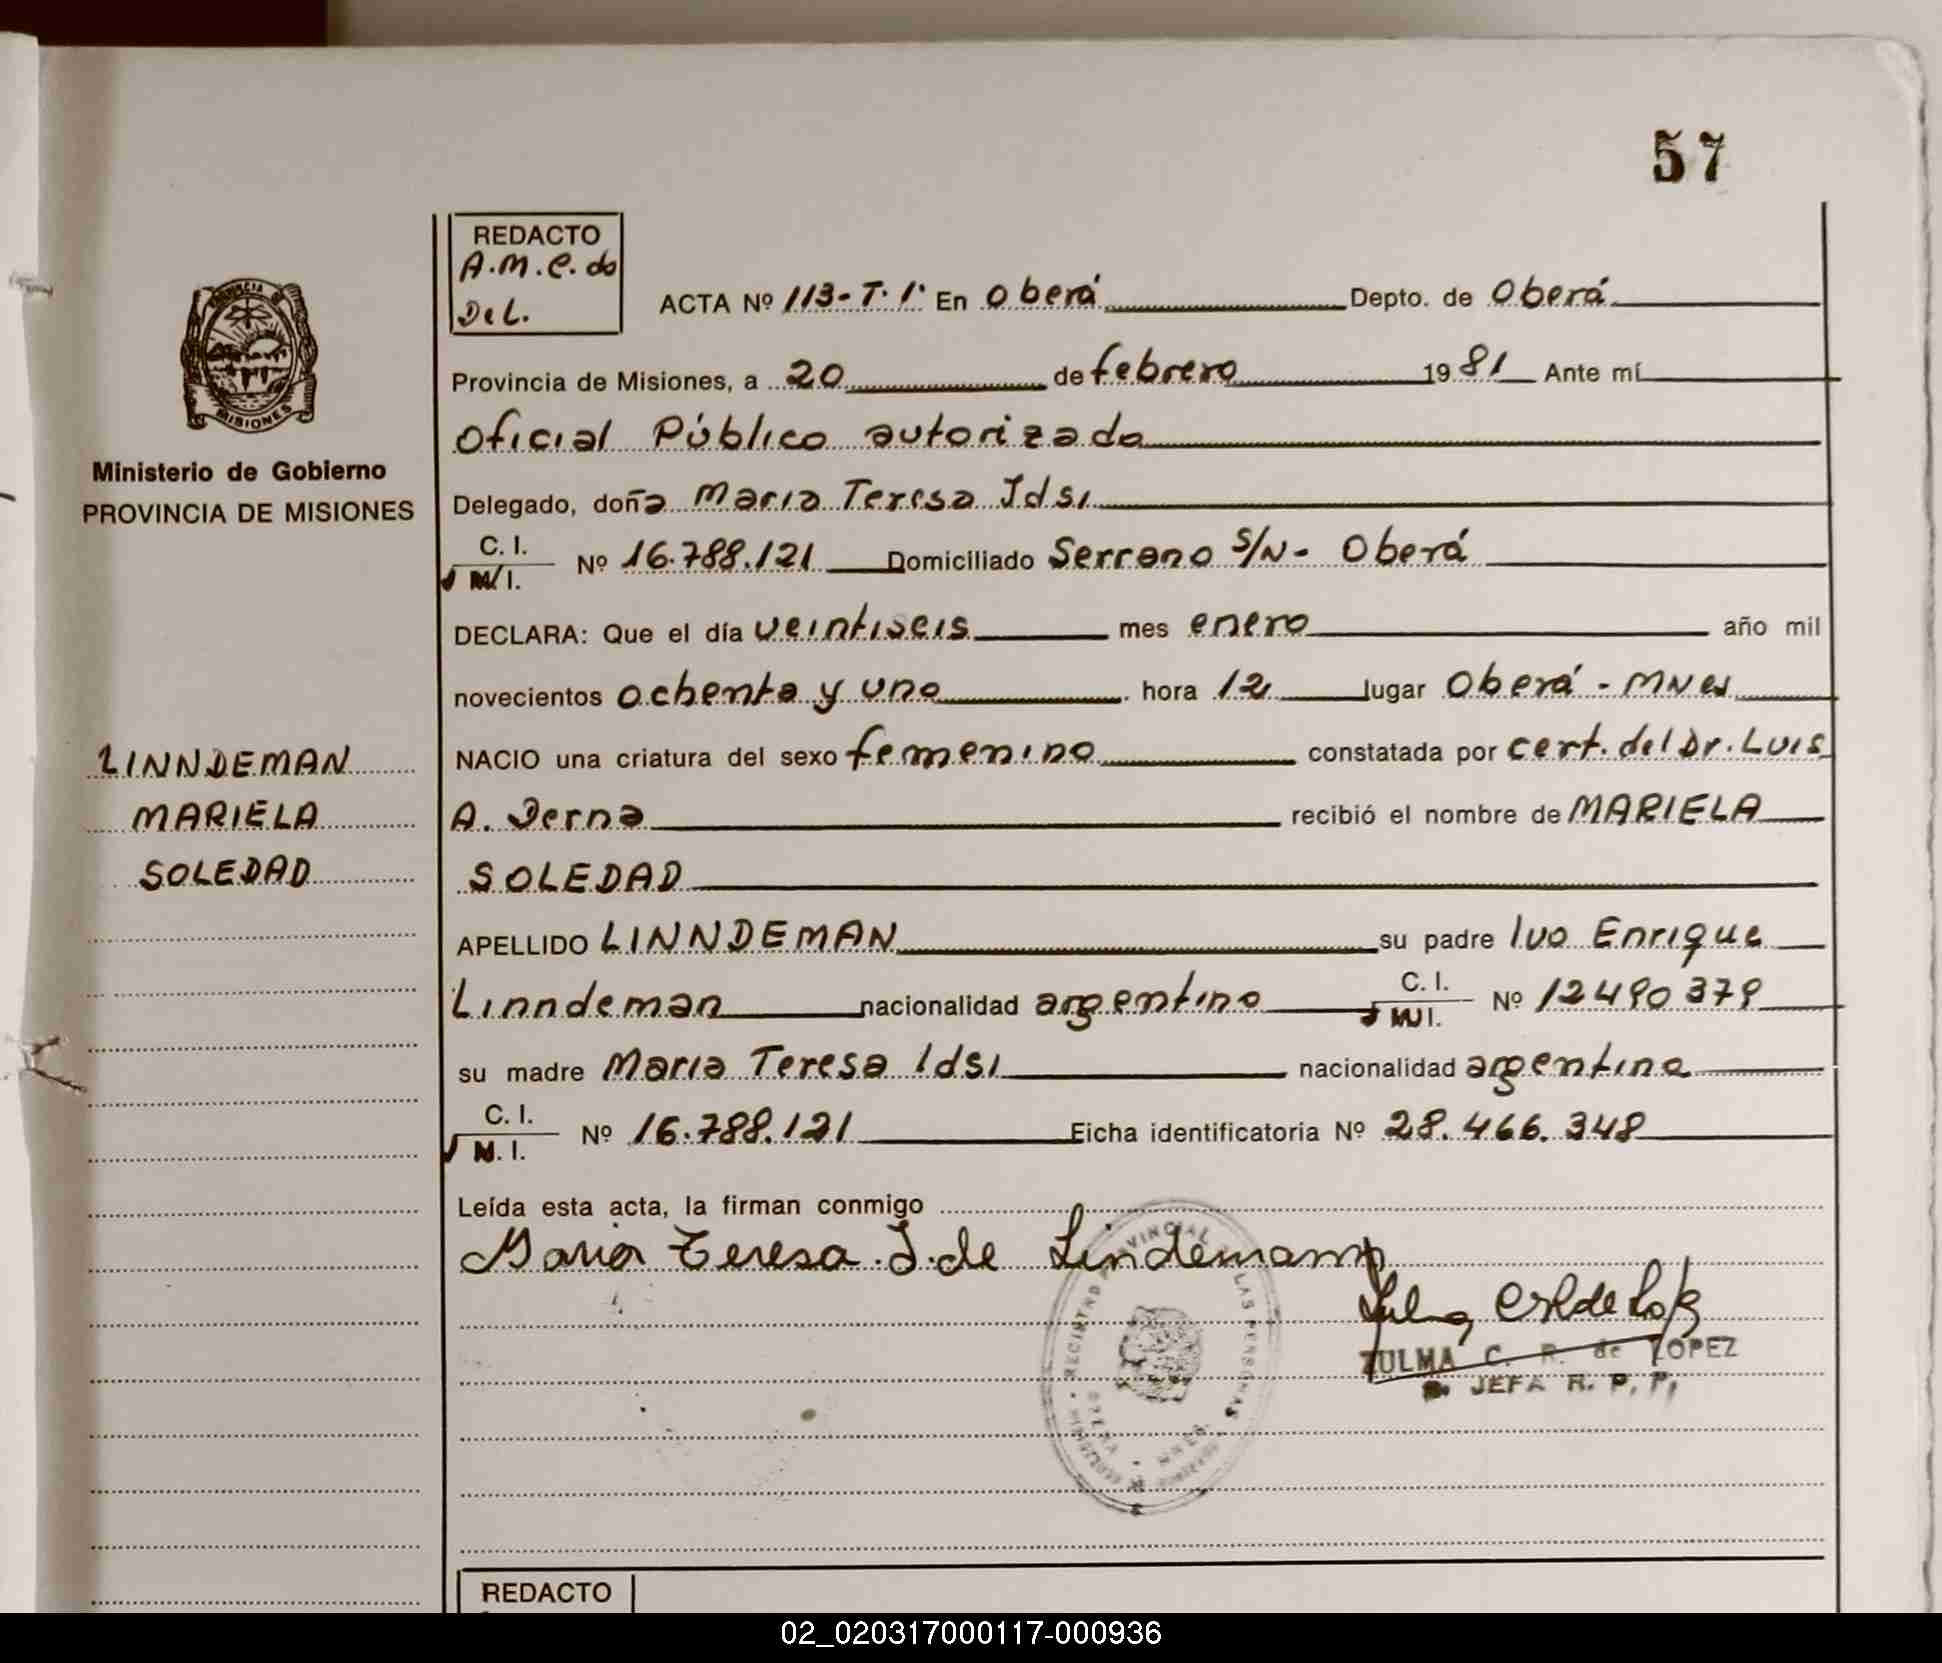 57
REDACTO
A.M.C. de
Del.
ACTA Nº 113-T.1º En Oberá Depto. de Oberá
Provincia de Misiones, a 20 de febrero 1981 Ante mí
Oficial Público autorizado
Delegado, doña Maria Teresa Idsi
C. I.
M. I. Nº 16.788.121 Domiciliado Serrano S/N- Oberá
DECLARA: Que el día veintiseis mes enero año mil
novecientos ochenta y uno hora 12 lugar Oberá - MNes
NACIO una criatura del sexo femenino constatada por cert. del Dr. Luis
A. Derna recibió el nombre de MARIELA
SOLEDAD
APELLIDO LINNDEMAN su padre Ivo Enrique
Linndeman nacionalidad argentino C. I.
M. I. Nº 12490379
su madre Maria Teresa Idsi nacionalidad argentina
C. I.
M. I. Nº 16.788.121 Ficha identificatoria Nº 28.466.348
Leída esta acta, la firman conmigo
Maria Teresa. I. de Lindemann
ZULMA C. R. de LOPEZ
JEFA R. P. P.
PROVINCIA DE
MISIONES
Ministerio de Gobierno
PROVINCIA DE MISIONES
LINNDEMAN
MARIELA
SOLEDAD
REDACTO
02_020317000117-000936